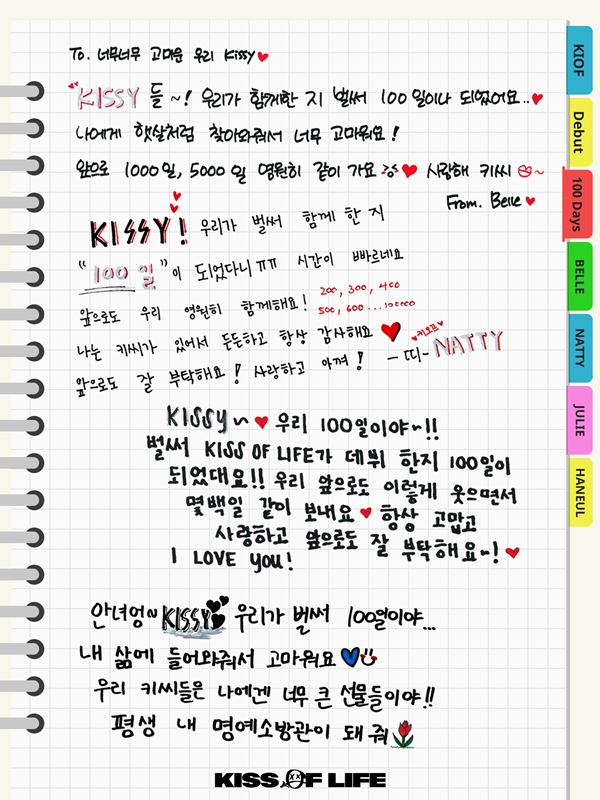 To. 너무너무 고마운 우리 Kissy♥
KISSY 들 ~! 우리가 함께한 지 벌써 100일이나 되었어요..♥
나에게 햇살처럼 찾아와줘서 너무 고마워요!
앞으로 1000일, 5000일 영원히 같이 가요 ♥ 사랑해 키씨 ~
From. Belle ♥
KISSY! 우리가 벌써 함께 한 지
"100일"이 되었다니ㅠㅠ 시간이 빠르네요
앞으로도 우리 영원히 함께해요! 200, 300, 400
500, 600...
나는 키씨가 있어서 든든하고 항상 감사해요 ♥
앞으로도 잘 부탁해요! 사랑하고 아껴! -띠- ♥키오프♥ NATTY
KISSY~ ♥ 우리 100일이야~!!
벌써 KISS OF LIFE가 데뷔 한지 100일이
되었대요!! 우리 앞으로도 이렇게 웃으면서
몇백일 같이 보내요 ♥ 항상 고맙고
사랑하고 앞으로도 잘 부탁해요~! ♥
I LOVE you!
안녀엉~ KISSY 우리가 벌써 100일이야...
내 삶에 들어와줘서 고마워요
우리 키씨들은 나에겐 너무 큰 선물들이야!!
평생 내 명예소방관이 돼줘
KISS OF LIFE
KIOF
Debut
100 Days
BELLE
NATTY
JULIE
HANEUL